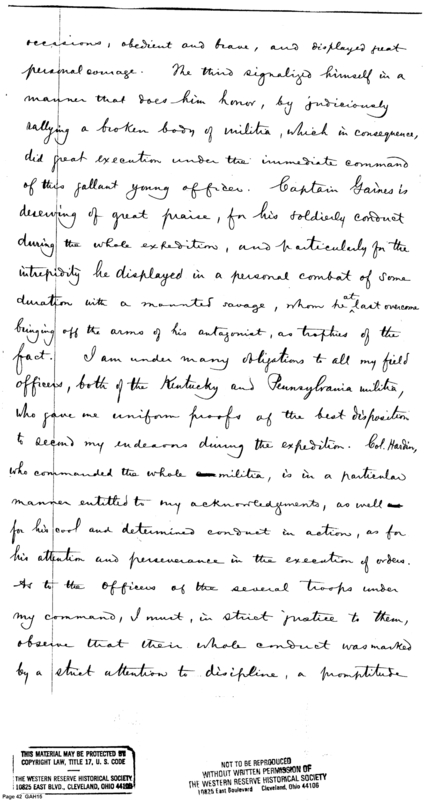 occasions, obedient and brave, and displayed great
personal courage. The third signalized himself in a
manner that does him honor, by judiciously
rallying a broken body of militia, which in consequence,
did great execution under the immediate command
of this gallant young officer. Captain Gaines is
deserving of great praise, for his soldierly conduct
during the whole expedition, and particularly for the
intrepidity he displayed in a personal combat of some
duration with a mounted savage, whom he at last overcome
bringing off the arms of his antagonist, as trophies of the
fact. I am under many obligations to all my field
officers, both of the Kentucky and Pennsylvania militia,
who gave me uniform proofs of the best disposition
to second my endeavors during the expedition. Col. Hardin,
who commanded the whole militia, is in a particular
manner entitled to my acknowledgements, as well
for his cool and determined conduct in action, as for
his attention and perseverance in the execution of orders.
As to the officers of the several troops under
my command, I must, in strict justice to them,
observe that their whole conduct was marked
by a strict attention to discipline, a promptitude
THIS MATERIAL MAY BE PROTECTED BY
COPYRIGHT LAW, TITLE 17, U. S. CODE
THE WESTERN RESERVE HISTORICAL SOCIETY
10825 EAST BLVD., CLEVELAND, OHIO 44106
NOT TO BE REPRODUCED
WITHOUT WRITTEN PERMISSION OF
THE WESTERN RESERVE HISTORICAL SOCIETY
10825 East Boulevard Cleveland, Ohio 44106
Page 42 GAH15